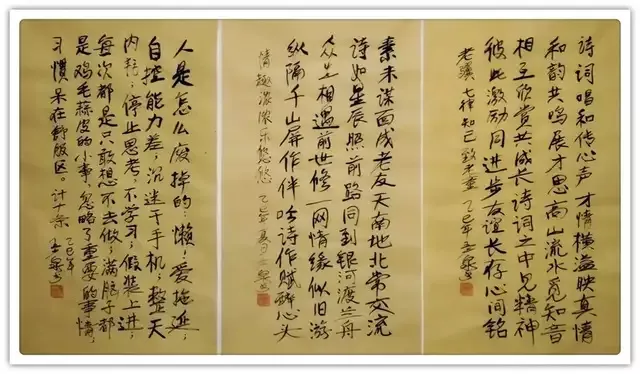 诗词唱和传心声 才情横溢映真情
和韵共鸣展才思高山流水觅知音
相互欣赏共成长诗词之中见精神
彼此激励同进步友谊长存心间铭
七律知己 乙巳年
素未谋面成老友天南地北常交流
诗如星辰照前路同到银河渡兰舟
众生相遇前世修一网情缘似旧游
纵隔千山屏作伴吟诗作赋醉心头
情趣浓浓乐悠悠 乙巳年夏
人是怎么废掉的:懒!爱拖延,
自控能力差,沉迷于手机,整天
内耗,停止思考,不学习,假装上进,
每次都是只敢想不去做,满脑子都
是鸡毛蒜皮的小事,忽略了重要的事情,
习惯呆在舒服区。计十条 乙巳年